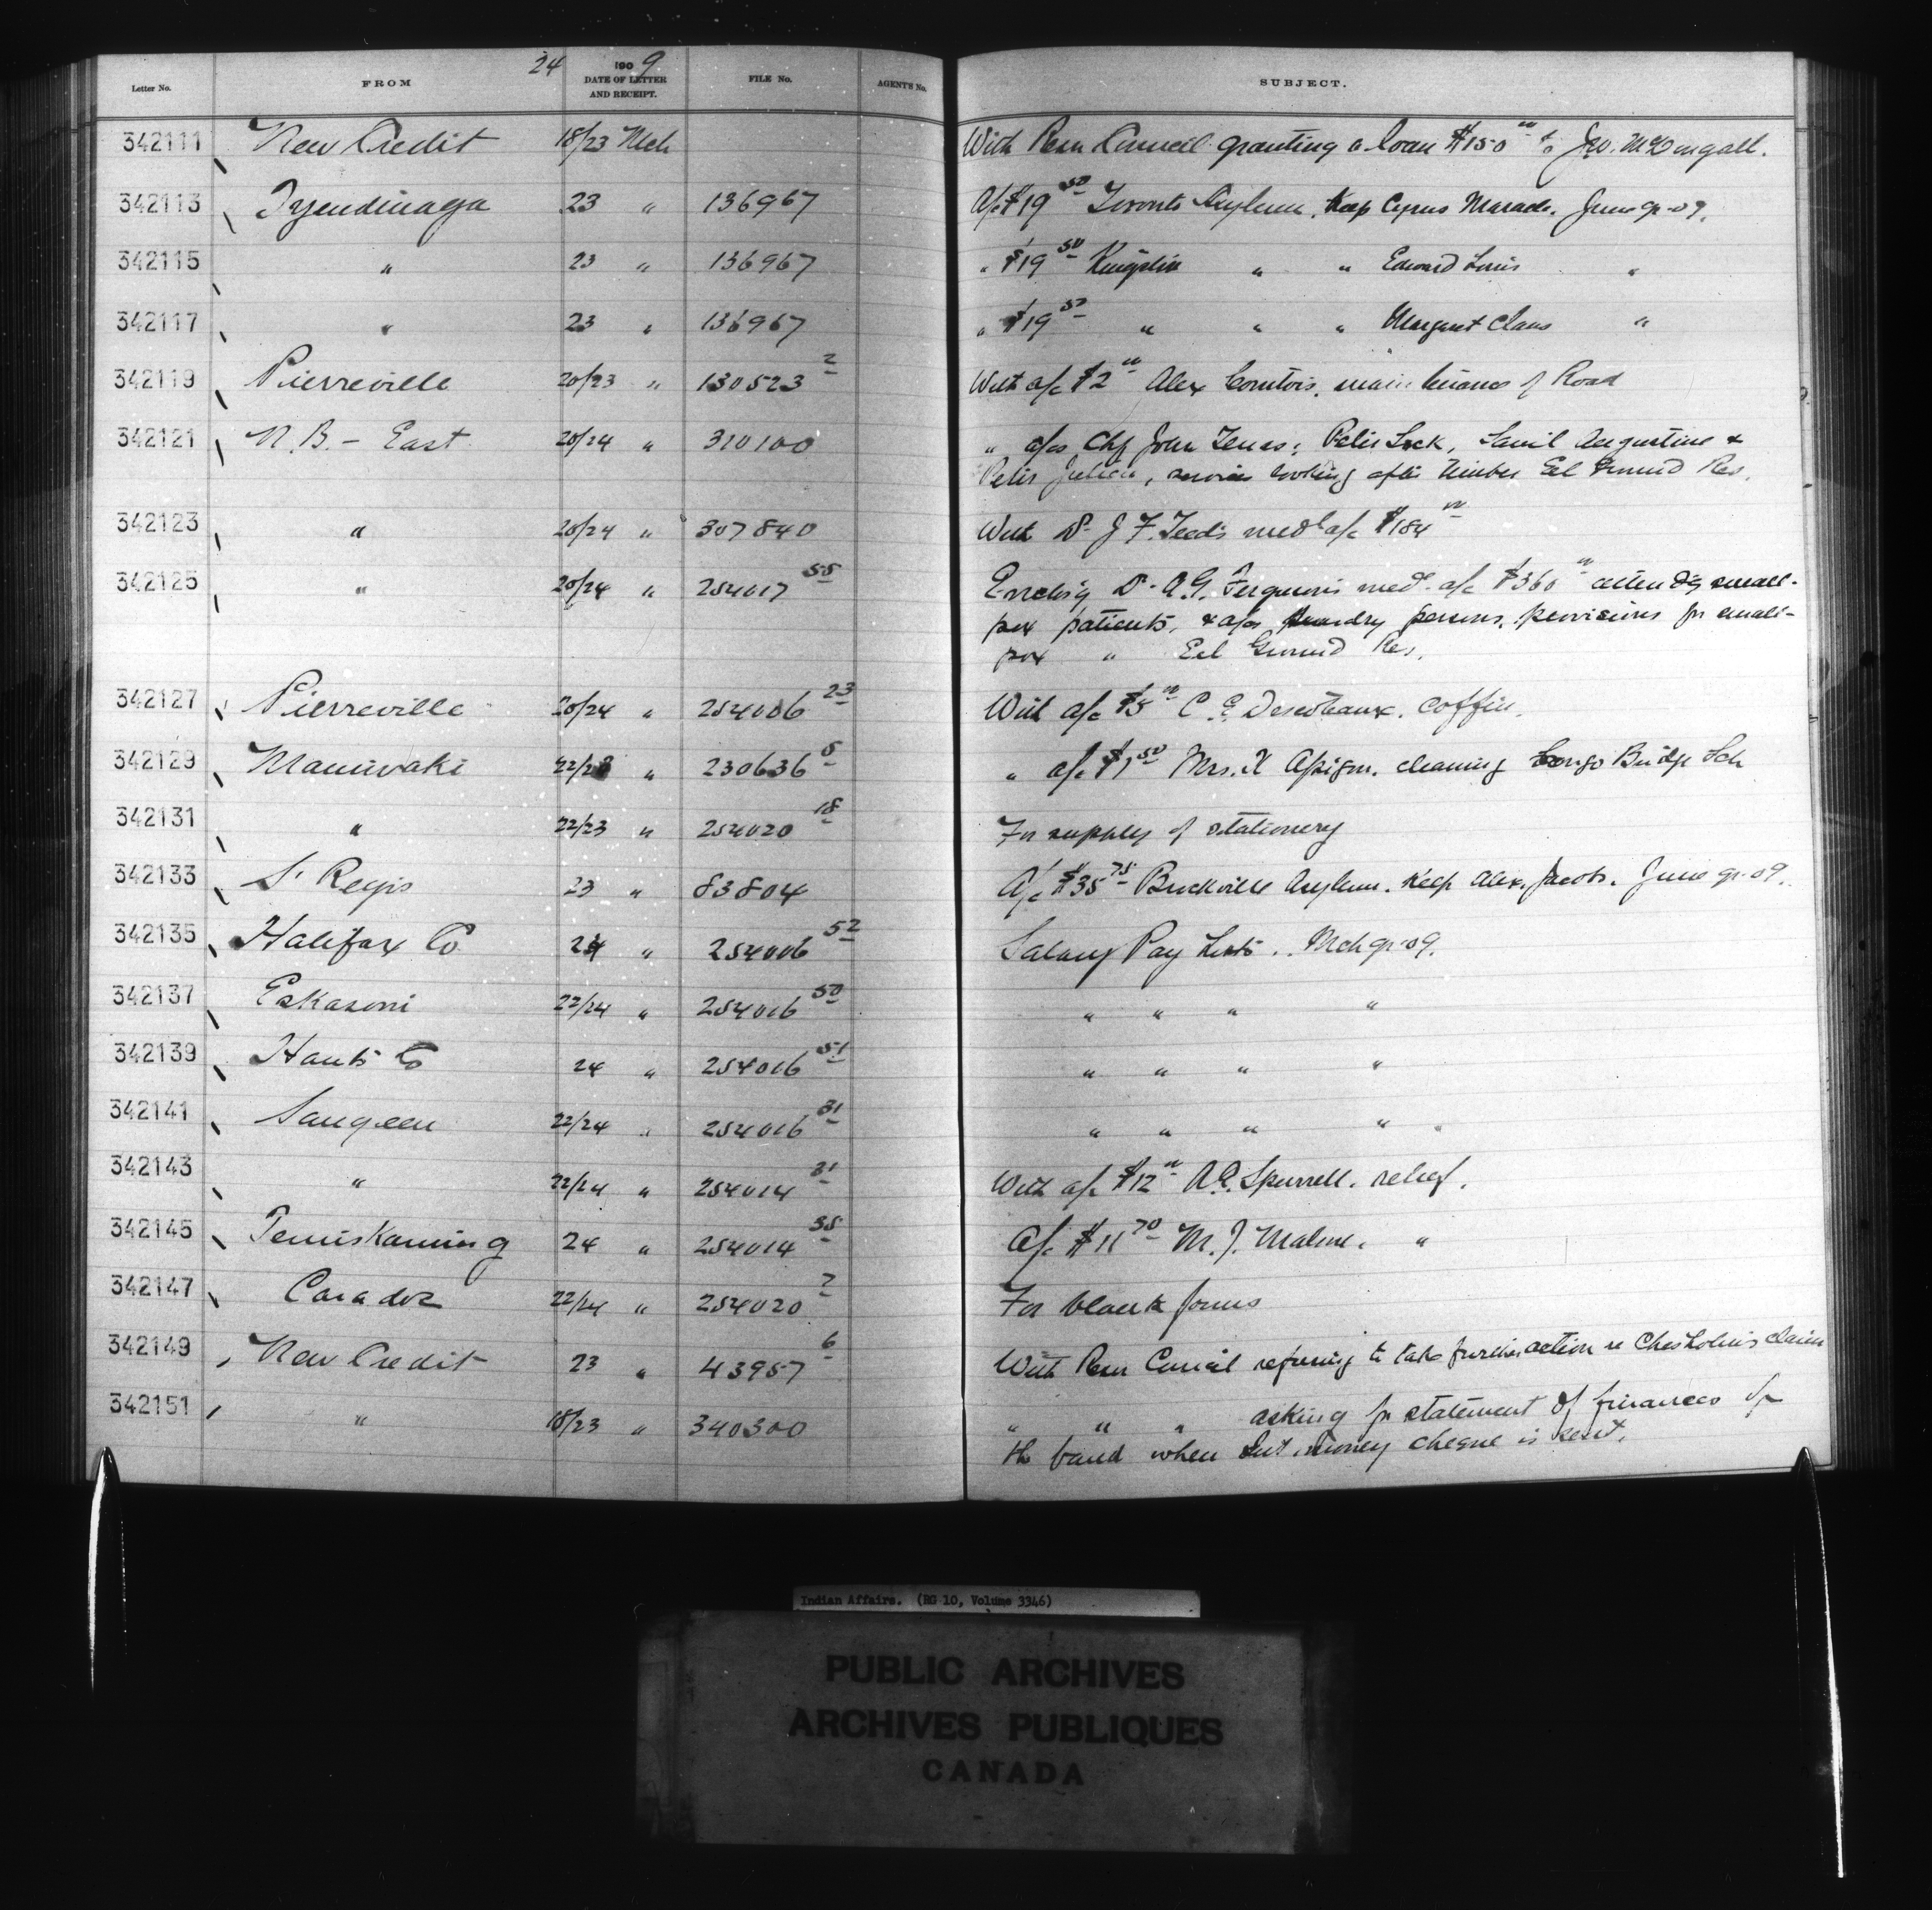 24 1909
Letter No. FROM DATE OF LETTER AND RECEIPT. FILE No. AGENT'S No. SUBJECT.
342111 New Credit 18/23 Mch With Resn Council granting a loan $150 00 to Jno. McDougall.
342113 Tyendinaga 23 " 136967 A/c $19 50 Toronto Asylum, keep Cyrus Maracle. June qr-09.
342115 " 23 " 136967 " $19 50 Kingston " " Edward Loris "
342117 " 23 " 136967 " $19 50 " " " Margaret Claus "
342119 Pierreville 20/23 " 130523 2 With a/c $2 00 Alex Comtois. maintenance of Road
342121 N.B. - East 20/24 " 310100 " a/cs Chf John Tenas; Peter Lock, Samil Augustine &
Peter Julien, services looking after Timber Eel Ground Res.
342123 " 20/24 " 307840 With Dr J F. Teed's medl a/c $184 00
342125 " 20/24 " 254017 55 Encling Dr A.G. Ferguson's med. a/c $360 00 attendg small-
pox patients, & a/cs sundry persons, provisions for small-
pox " Eel Ground Res.
342127 Pierreville 20/24 " 254006 23 With a/c $5 00 C. E. coffin.
342129 Maniwaki 22/23 " 230636 5 " a/c $1 50 Mrs. X cleaning Congo Bridge Sch
342131 " 22/23 " 254020 18 For supply of stationery
342133 St Regis 23 " 83804 A/c $35 75 Brockville Asylum. Keep Alex. Jacobs. June qr-09.
342135 Halifax Co 24 " 254006 52 Salary Pay Lists.. Mch qr-09.
342137 Eskasoni 22/24 " 254016 50 " " " "
342139 Hants Co 24 " 254016 51 " " " "
342141 Saugeen 22/24 " 254016 31 " " " "
342143 " 22/24 " 254014 31 With a/c $12 00 A.E. Spurrell. relief.
342145 Temiskaming 24 " 254014 35 A/c $11 70 M. J. Malone. "
342147 Caradoc 22/24 " 254020 7 For blank forms
342149 New Credit 23 " 43957 6 With Resn Council refusing to take further action re Chisholm's claim
342151 " 18/23 " 340300 " " " asking for statement of finances of
the band when Int. money cheque is sent.
Indian Affairs. (RG 10, Volume 3346)
PUBLIC ARCHIVES
ARCHIVES PUBLIQUES
CANADA